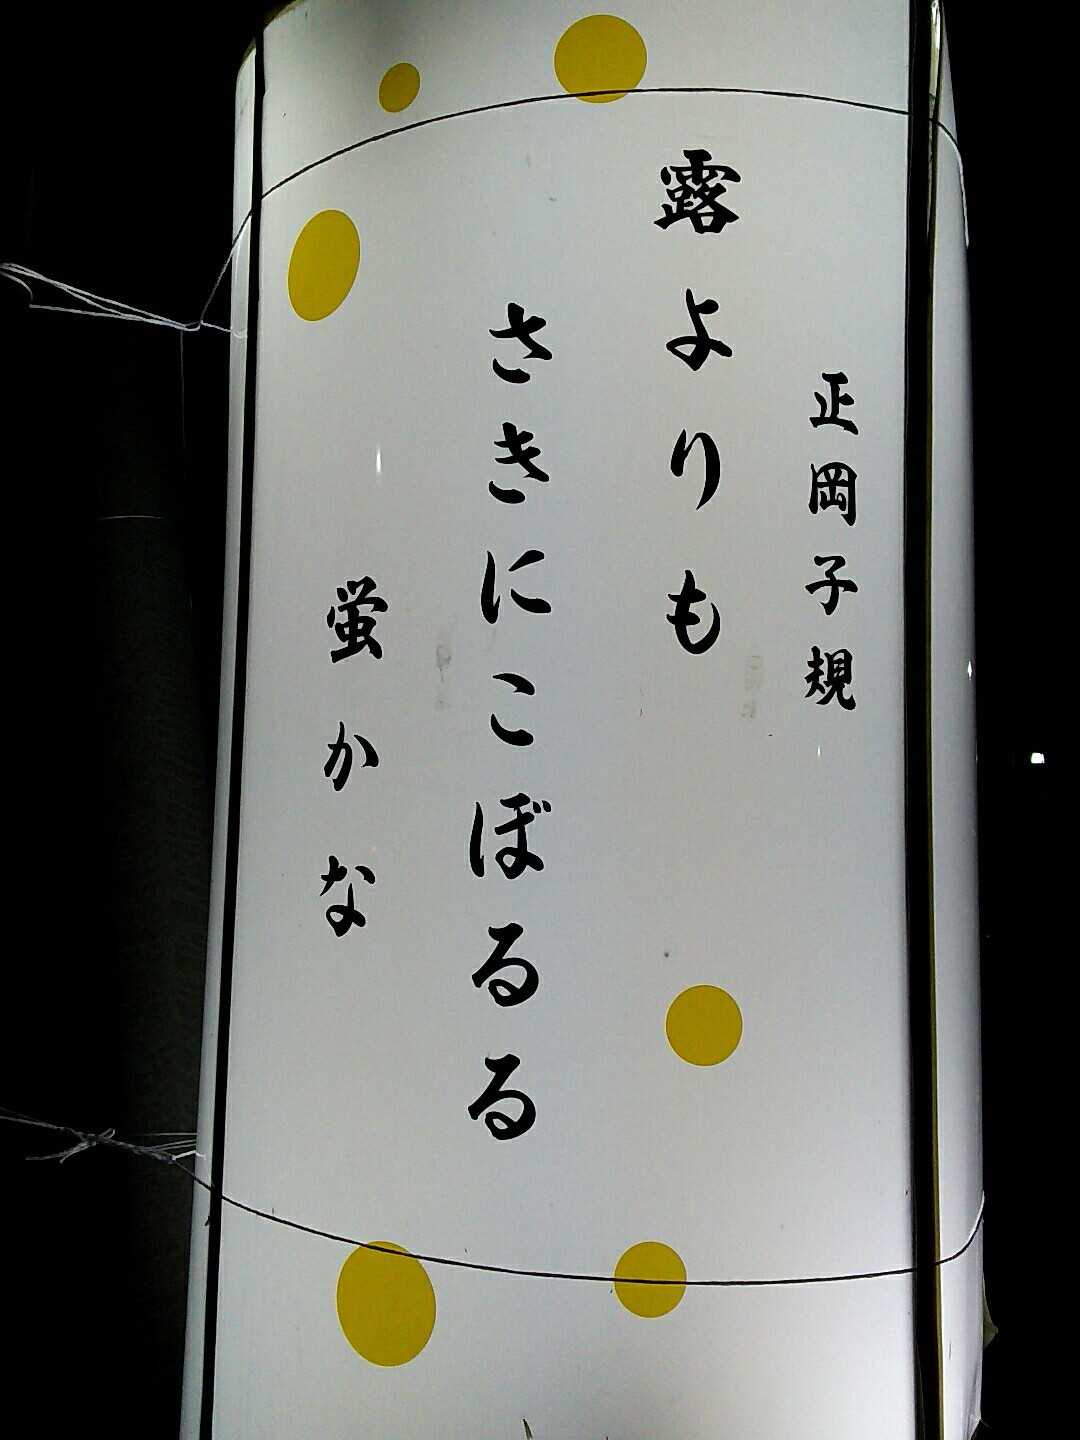 正岡子規
露よりも
さきにこぼるる
蛍かな